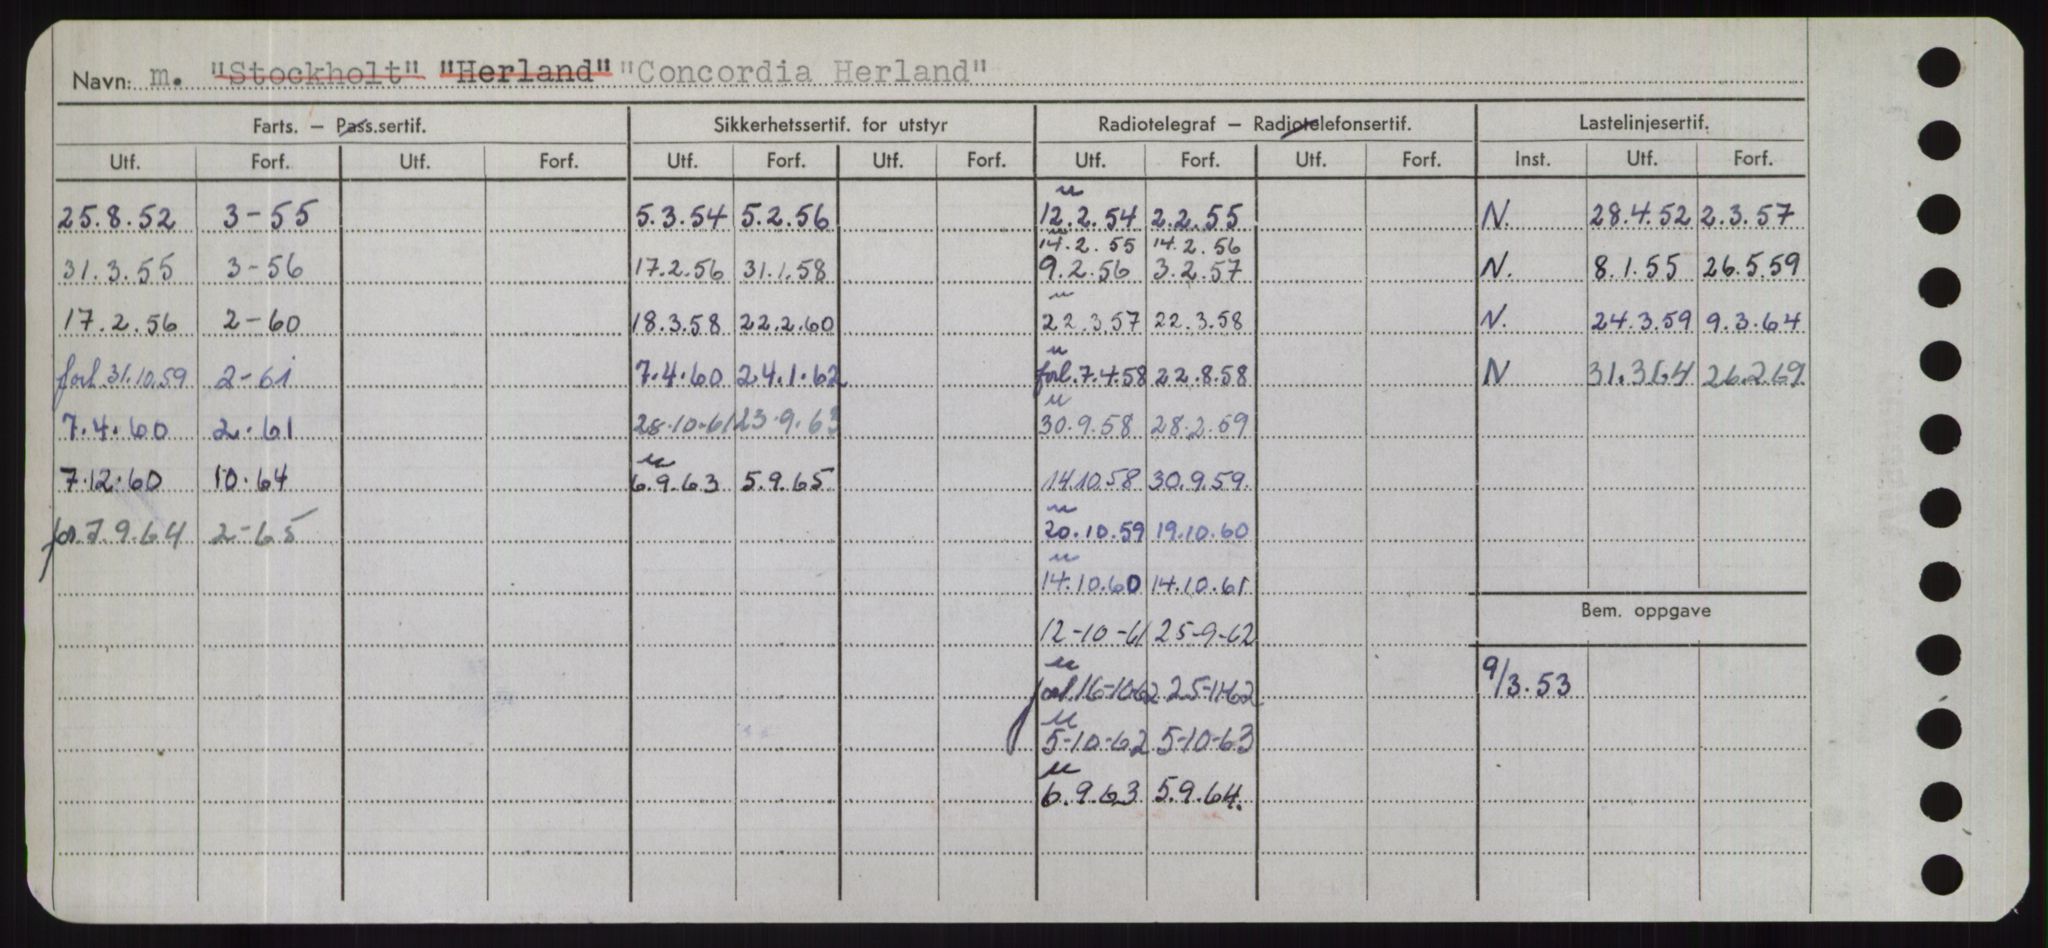 Navn: m. "Stockholt" "Herland" "Concordia Herland"
Farts. – Pass.sertif. Sikkerhetssertif. for utstyr Radiotelegraf – Radiotelefonsertif. Lastelinjesertif.
Utf. Forf. Utf. Forf. Utf. Forf. Utf. Forf. Utf. Forf. Utf. Forf. Inst. Utf. Forf.
u
25.8.52 3-55 5.3.54 5.2.56 12.2.54 2.2.55 N. 28.4.52 2.3.57
14.2.55 14.2.56
31.3.55 3-56 17.2.56 31.1.58 9.2.56 3.2.57 N. 8.1.55 26.5.59
u
17.2.56 2-60 18.3.58 22.2.60 22.3.57 22.3.58 N. 24.3.59 9.3.64
u
forl 31.10.59 2-61 7.4.60 24.1.62 forl. 7.4.58 22.8.58 N 31.3.64 26.2.69
u
7.4.60 2.61 28.10.61 23.9.63 30.9.58 28.2.59
u
7.12.60 10.64 6.9.63 5.9.65 14.10.58 30.9.59.
u
for. 7.9.64 2-65 20.10.59 19.10.60
u
14.10.60 14.10.61
Bem. oppgave
12-10-61 25-9-62
u
forl. 16-10-62 25-11-62 9/3.53
u
5-10-62 5-10-63
u
6.9.63 5.9.64.